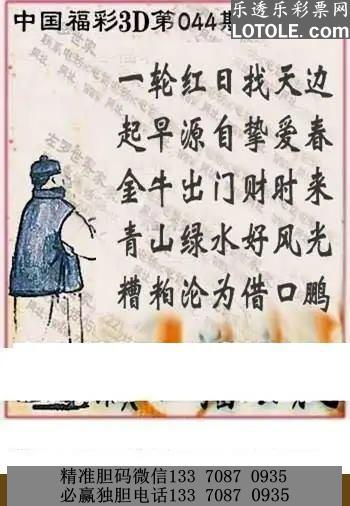 乐透乐彩票网
LOTOLE.COM
中国福彩3D第044期
一轮红日找天边
起早源自挚爱春
金牛出门财时来
青山绿水好风光
糟粕沦为借口鹏
精准胆码微信133 7087 0935
必赢独胆电话133 7087 0935